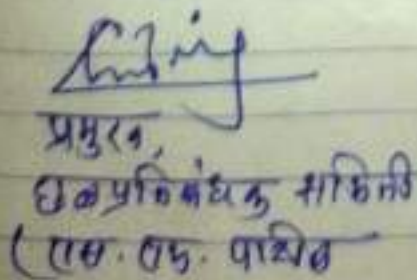 प्रमुख,
छळप्रतिबंधक समिती
(एस. एम. पाटील